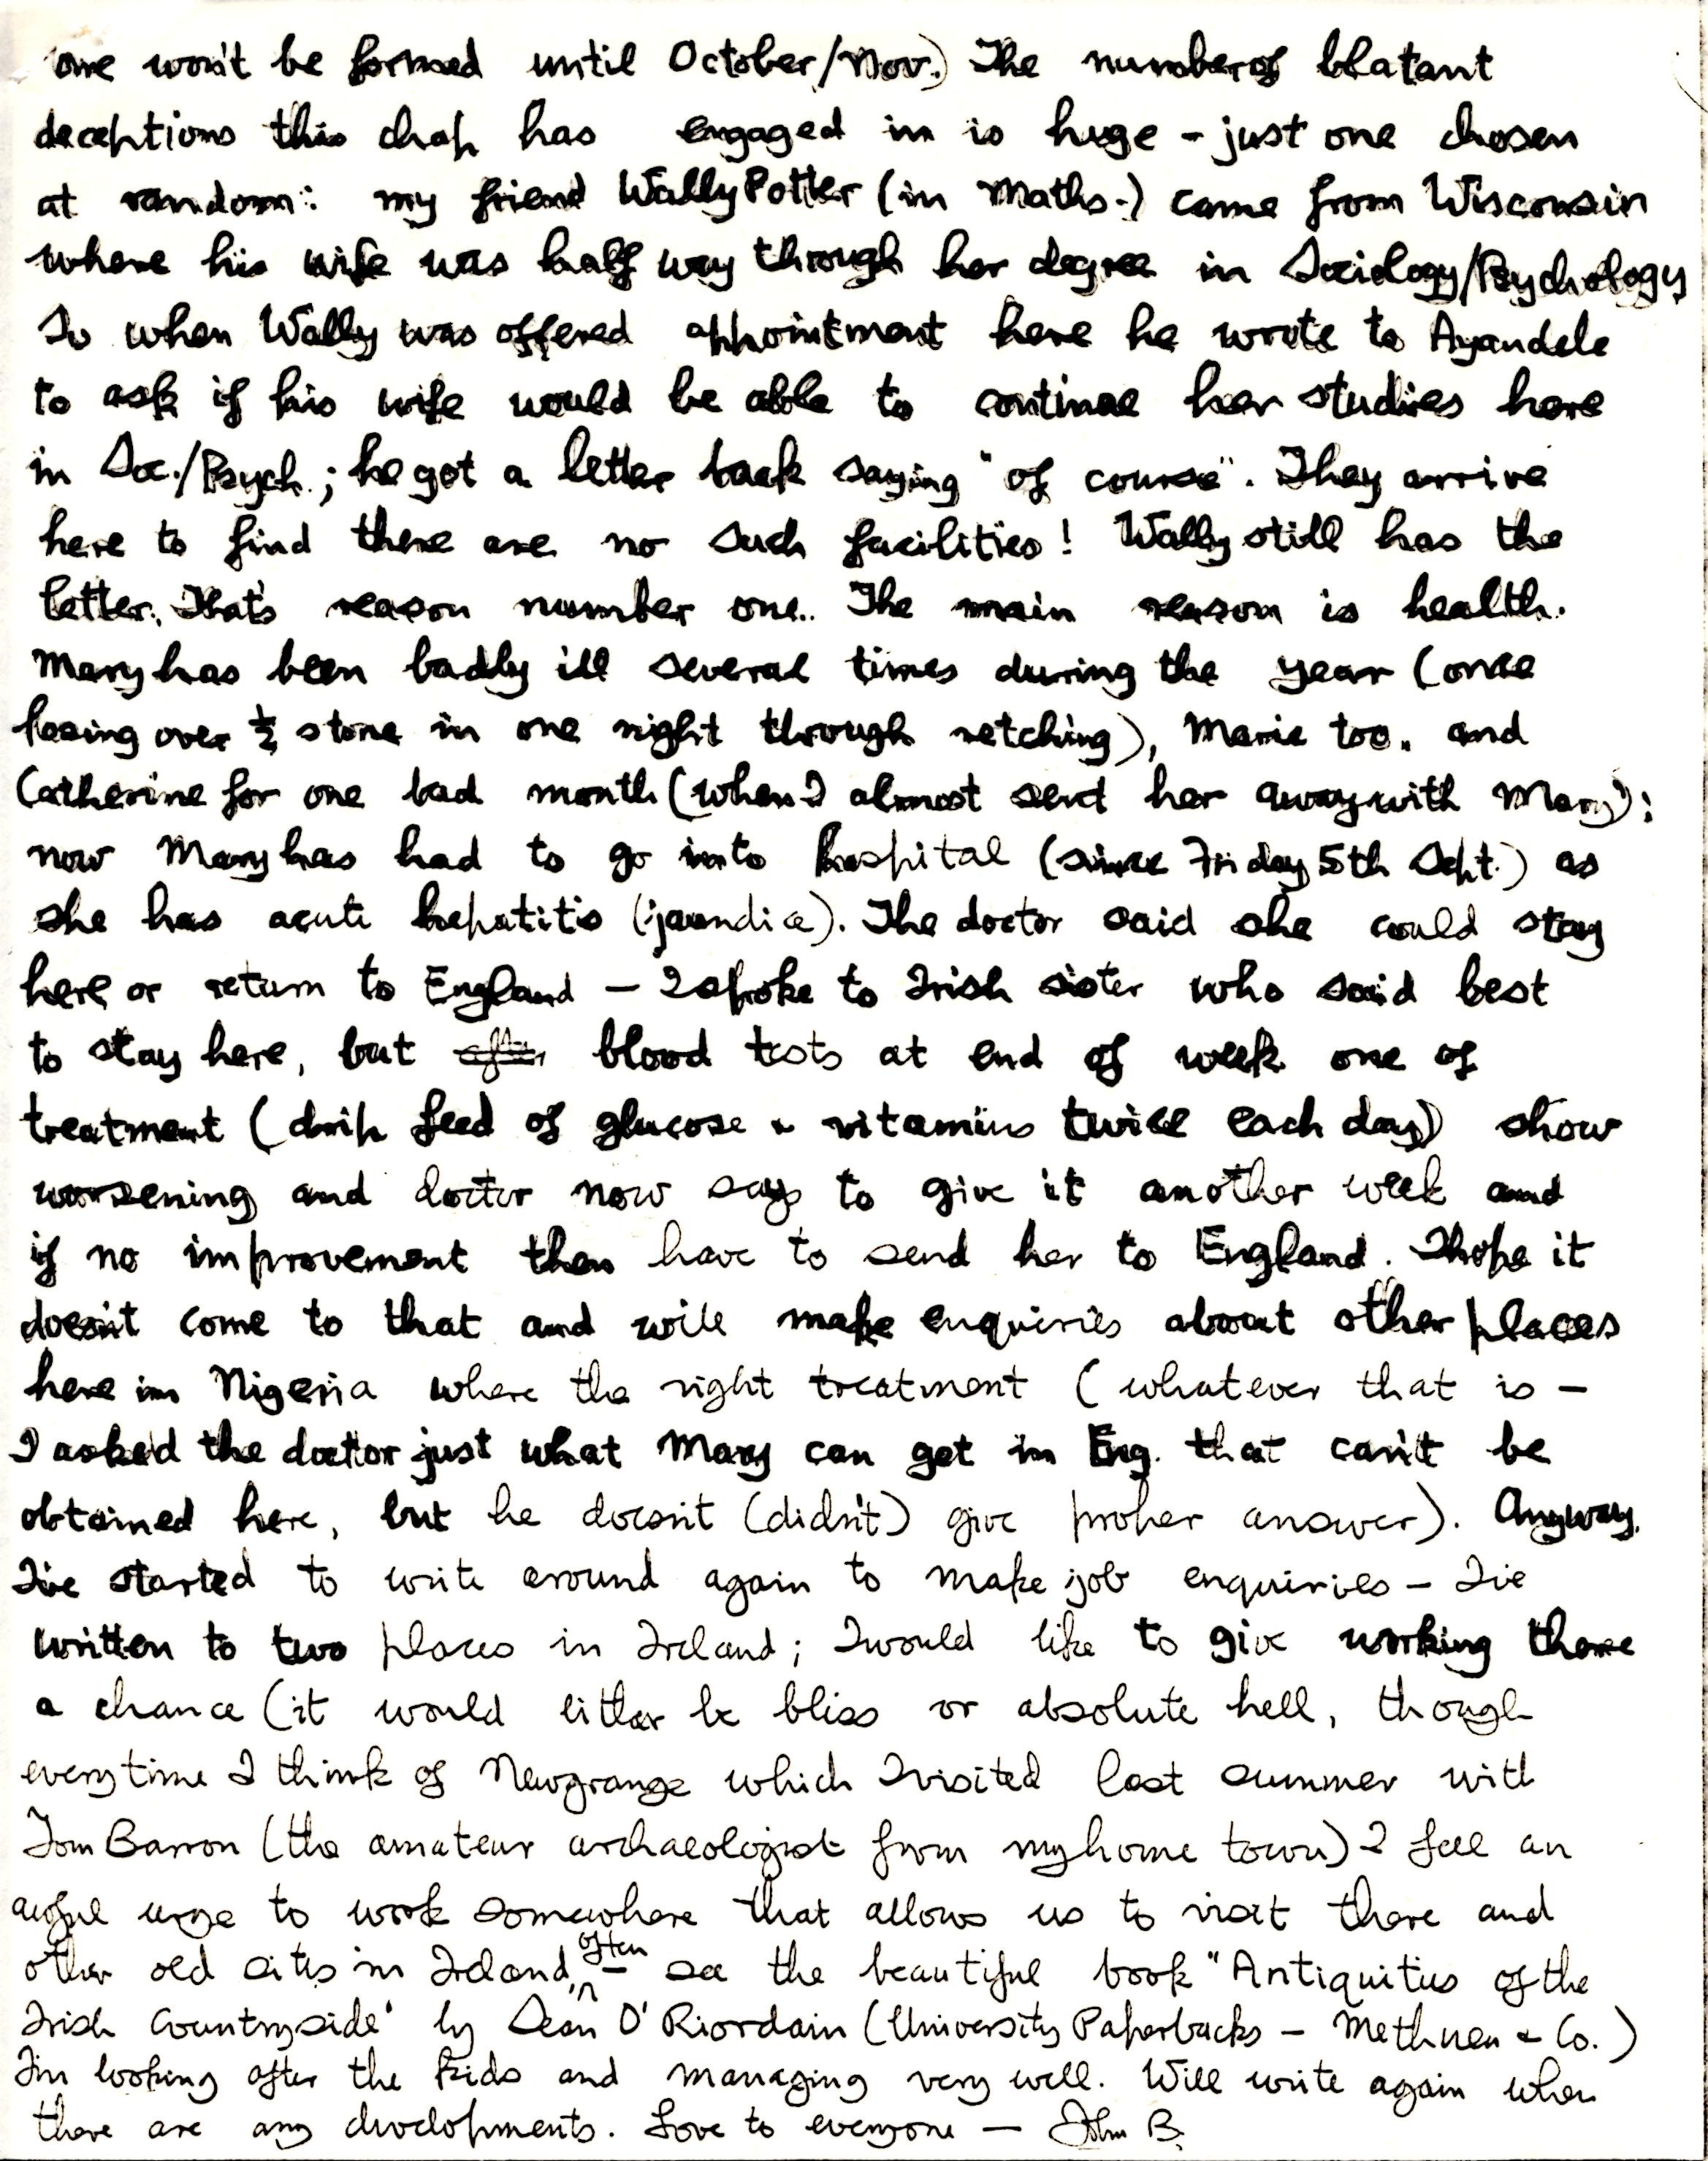 one won't be formed until October/Nov.) The number of blatant
deceptions this chap has engaged in is huge - just one chosen
at random: my friend Wally Potter (in Maths.) came from Wisconsin
where his wife was half way through her degree in Sociology/Psychology
So when Wally was offered appointment here he wrote to Ayandele
to ask if his wife would be able to continue her studies here
in Soc./Psych.; he got a letter back saying "of course". They arrive
here to find there are no such facilities! Wally still has the
letter. That's reason number one. The main reason is health.
Mary has been badly ill several times during the year (once
losing over ½ stone in one night through retching), Marie too. and
Catherine for one bad month (when I almost sent her away with Mary);
now Mary has had to go into hospital (since Friday 5th Sept.) as
she has acute hepatitis (jaundice). The doctor said she could stay
here or return to England - I spoke to Irish sister who said best
to stay here, but after blood tests at end of week one of
treatment (drip feed of glucose & vitamins twice each day) show
worsening and doctor now says to give it another week and
if no improvement then have to send her to England. I hope it
doesn't come to that and will make enquiries about other places
here in Nigeria where the right treatment (whatever that is -
I asked the doctor just what Mary can get in Eng. that can't be
obtained here, but he doesn't (didn't) give proper answer). Anyway,
I've started to write around again to make job enquiries - I've
written to two places in Ireland; I would like to give working there
a chance (it would either be bliss or absolute hell, though
everytime I think of Newgrange which I visited last summer with
Tom Barron (the amateur archaeologist from my home town) I feel an
awful urge to work somewhere that allows us to visit there and
other old sites in Ireland, often - see the beautiful book "Antiquities of the
Irish Countryside" by Sean O'Riordain (University Paperbacks - Methuen & Co.)
I'm looking after the kids and managing very well. Will write again when
there are any developments. Love to everyone - John B.